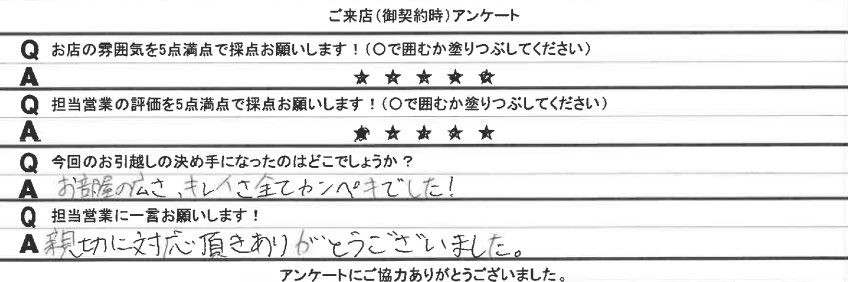 ご来店(御契約時)アンケート
Q お店の雰囲気を5点満点で採点お願いします!(○で囲むか塗りつぶしてください)
A ★★★★★
Q 担当営業の評価を5点満点で採点お願いします!(○で囲むか塗りつぶしてください)
A ★★★★★
Q 今回のお引越しの決め手になったのはどこでしょうか?
A お部屋の広さ、キレイさ全てカンペキでした!
Q 担当営業に一言お願いします!
A 親切に対応頂きありがとうございました。
アンケートにご協力ありがとうございました。